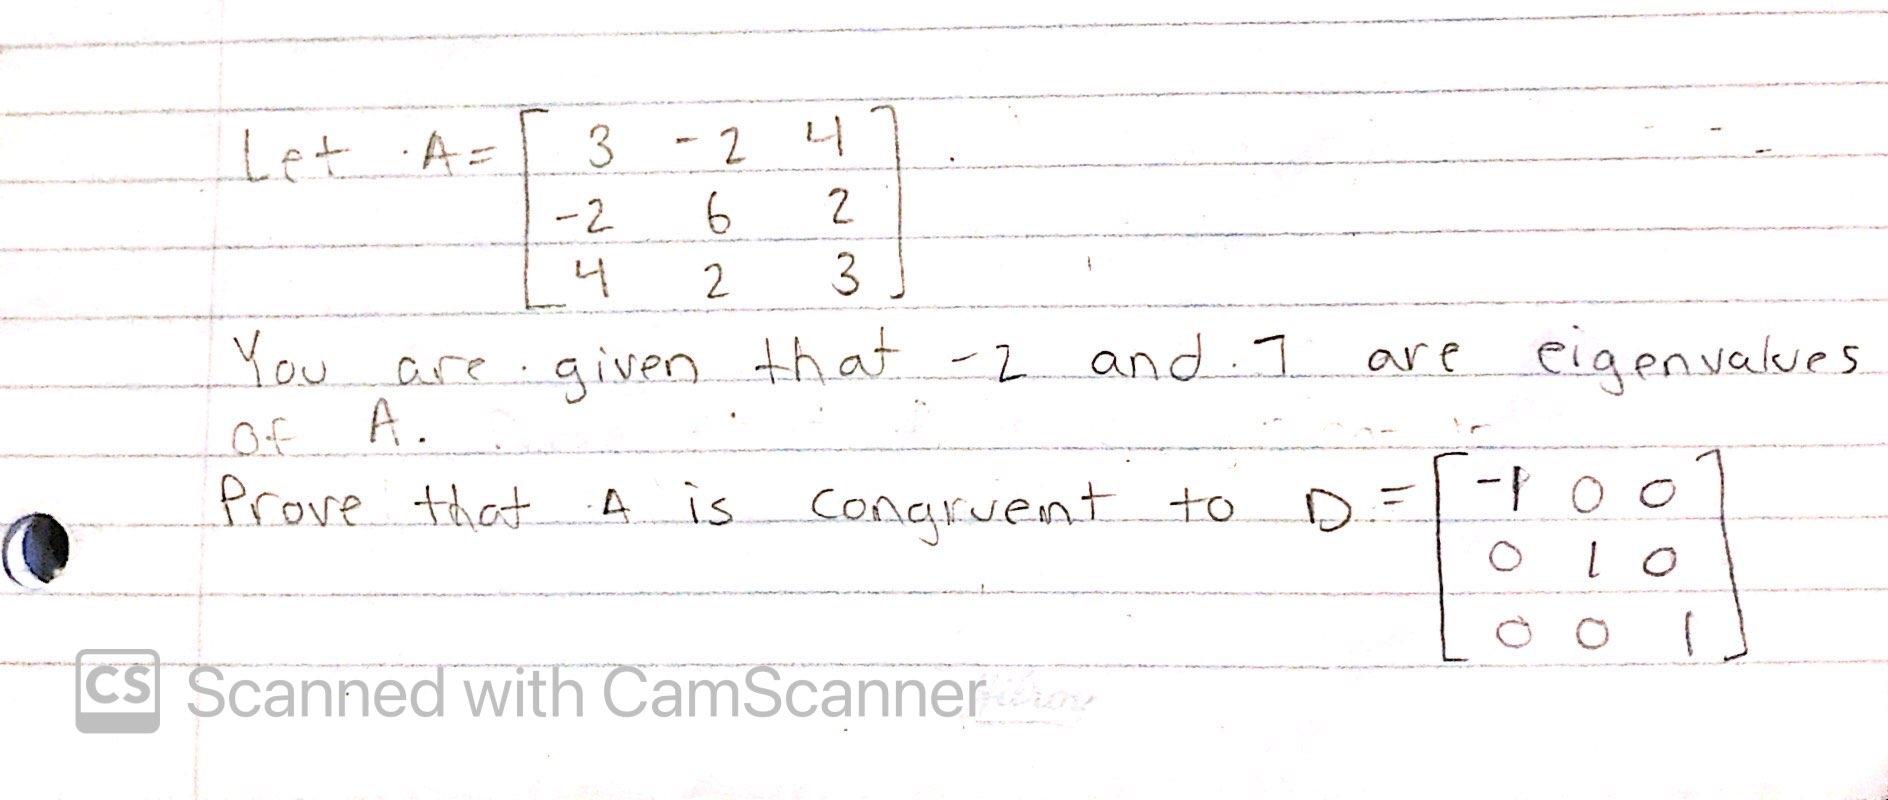 Let A = [ 3 -2 4
-2 6 2
4 2 3 ].
You are given that -2 and 7 are eigenvalues
of A.
Prove that A is congruent to D = [ -1 0 0
0 1 0
0 0 1 ]
CS Scanned with CamScanner